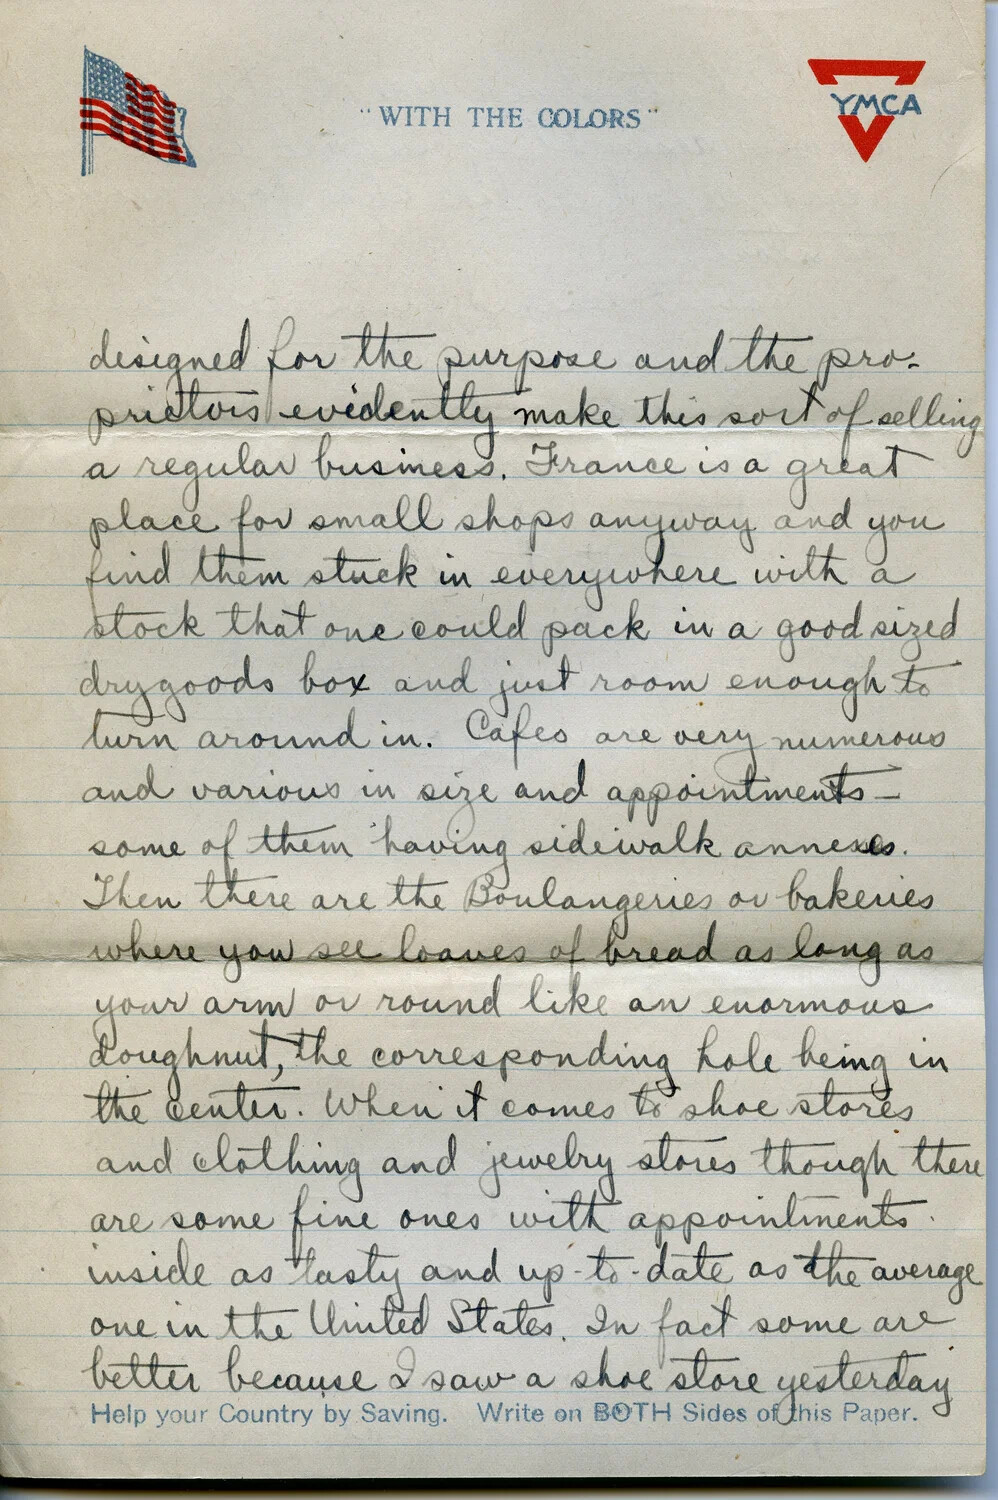 "WITH THE COLORS"
YMCA
designed for the purpose and the pro-
prietors evidently make this sort of selling
a regular business. France is a great
place for small shops anyway and you
find them stuck in everywhere with a
stock that one could pack in a good sized
drygoods box and just room enough to
turn around in. Cafes are very numerous
and various in size and appointments —
some of them having sidewalk annexes.
Then there are the Boulangeries or bakeries
where you see loaves of bread as long as
your arm or round like an enormous
doughnut, the corresponding hole being in
the center. When it comes to shoe stores
and clothing and jewelry stores though there
are some fine ones with appointments
inside as tasty and up-to-date as the average
one in the United States. In fact some are
better because I saw a shoe store yesterday
Help your Country by Saving. Write on BOTH Sides of this Paper.